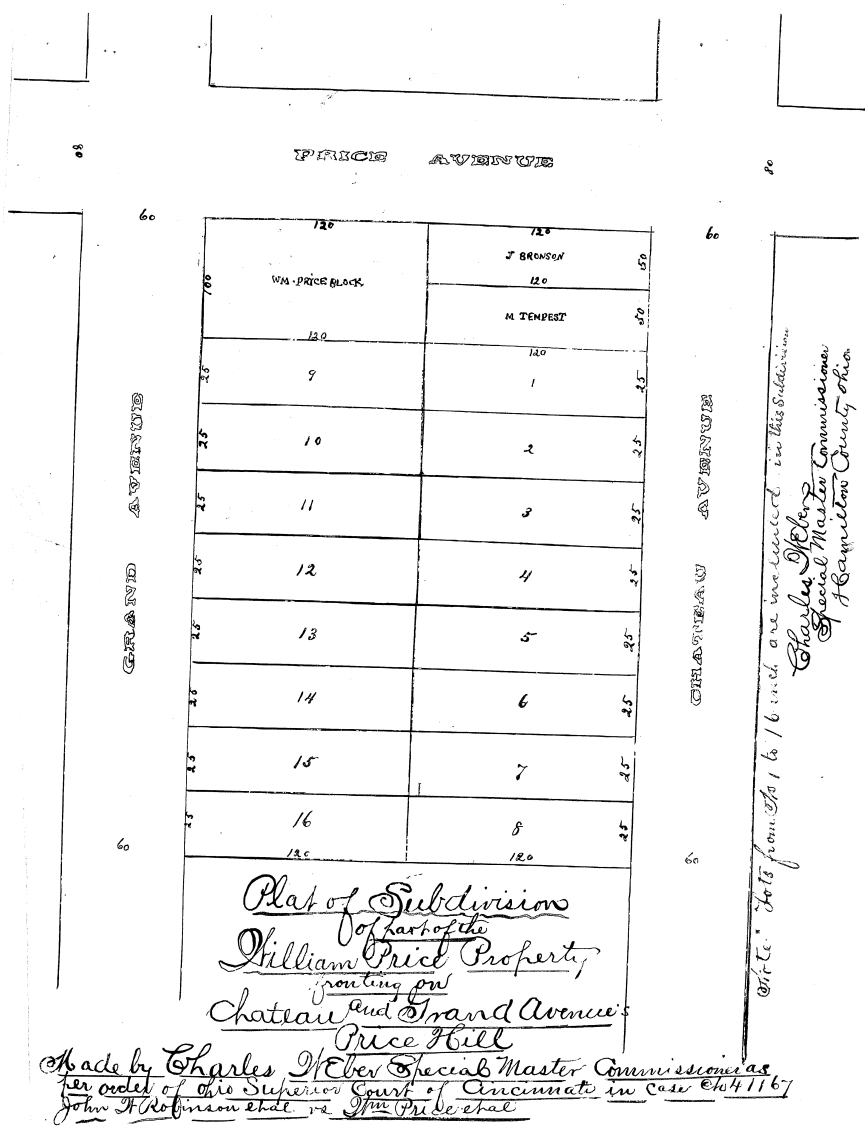 80
PRICE AVENUE
80
60
120
120
60
J BRONSON
50
100
WM. PRICE BLOCK
120
M TEMPEST
50
120
120
25
9
1
25
25
10
2
25
25
11
3
25
25
12
4
25
25
13
5
25
25
14
6
25
25
15
7
25
25
16
8
25
60
120
120
60
GRAND AVENUE
CHATEAU AVENUE
Note" Lots from No 1 to 16 incl. are included in this Subdivision
Charles Weber
Special Master Commissioner
Hamilton County Ohio
Plat of Subdivision
of part of the
William Price Property
fronting on
Chateau and Grand Avenue's
Price Hill
Made by Charles Weber Special Master Commissioner as
per order of Ohio Superior Court of Cincinnati in case No 41167
John H Robinson et al vs Wm Price et al